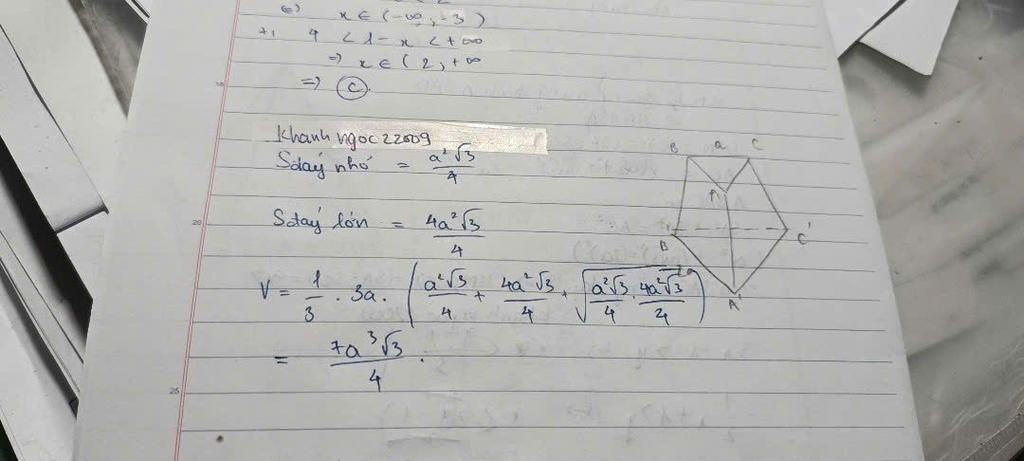 ⇔ x ∈ (-∞, -3)
+) 4 < 1 - x < +∞
⇒ x ∈ (2, +∞
⇒ C.
Khanh ngoc22009
Sđáy nhỏ = a²√3/4
Sđáy lớn = 4a²√3/4
V = 1/3 . 3a . (a²√3/4 + 4a²√3/4 + √(a²√3/4 . 4a²√3/4))
= 7a³√3/4 .
B a C
A
B' C'
A'
20
25